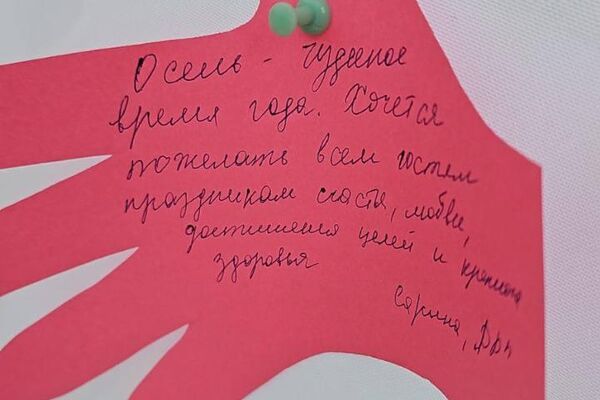 Осень - чудесное
время года. Хочется
пожелать всем гостям
праздникам счастья, любви,
достижения целей и крепкого
здоровья
Сарина,